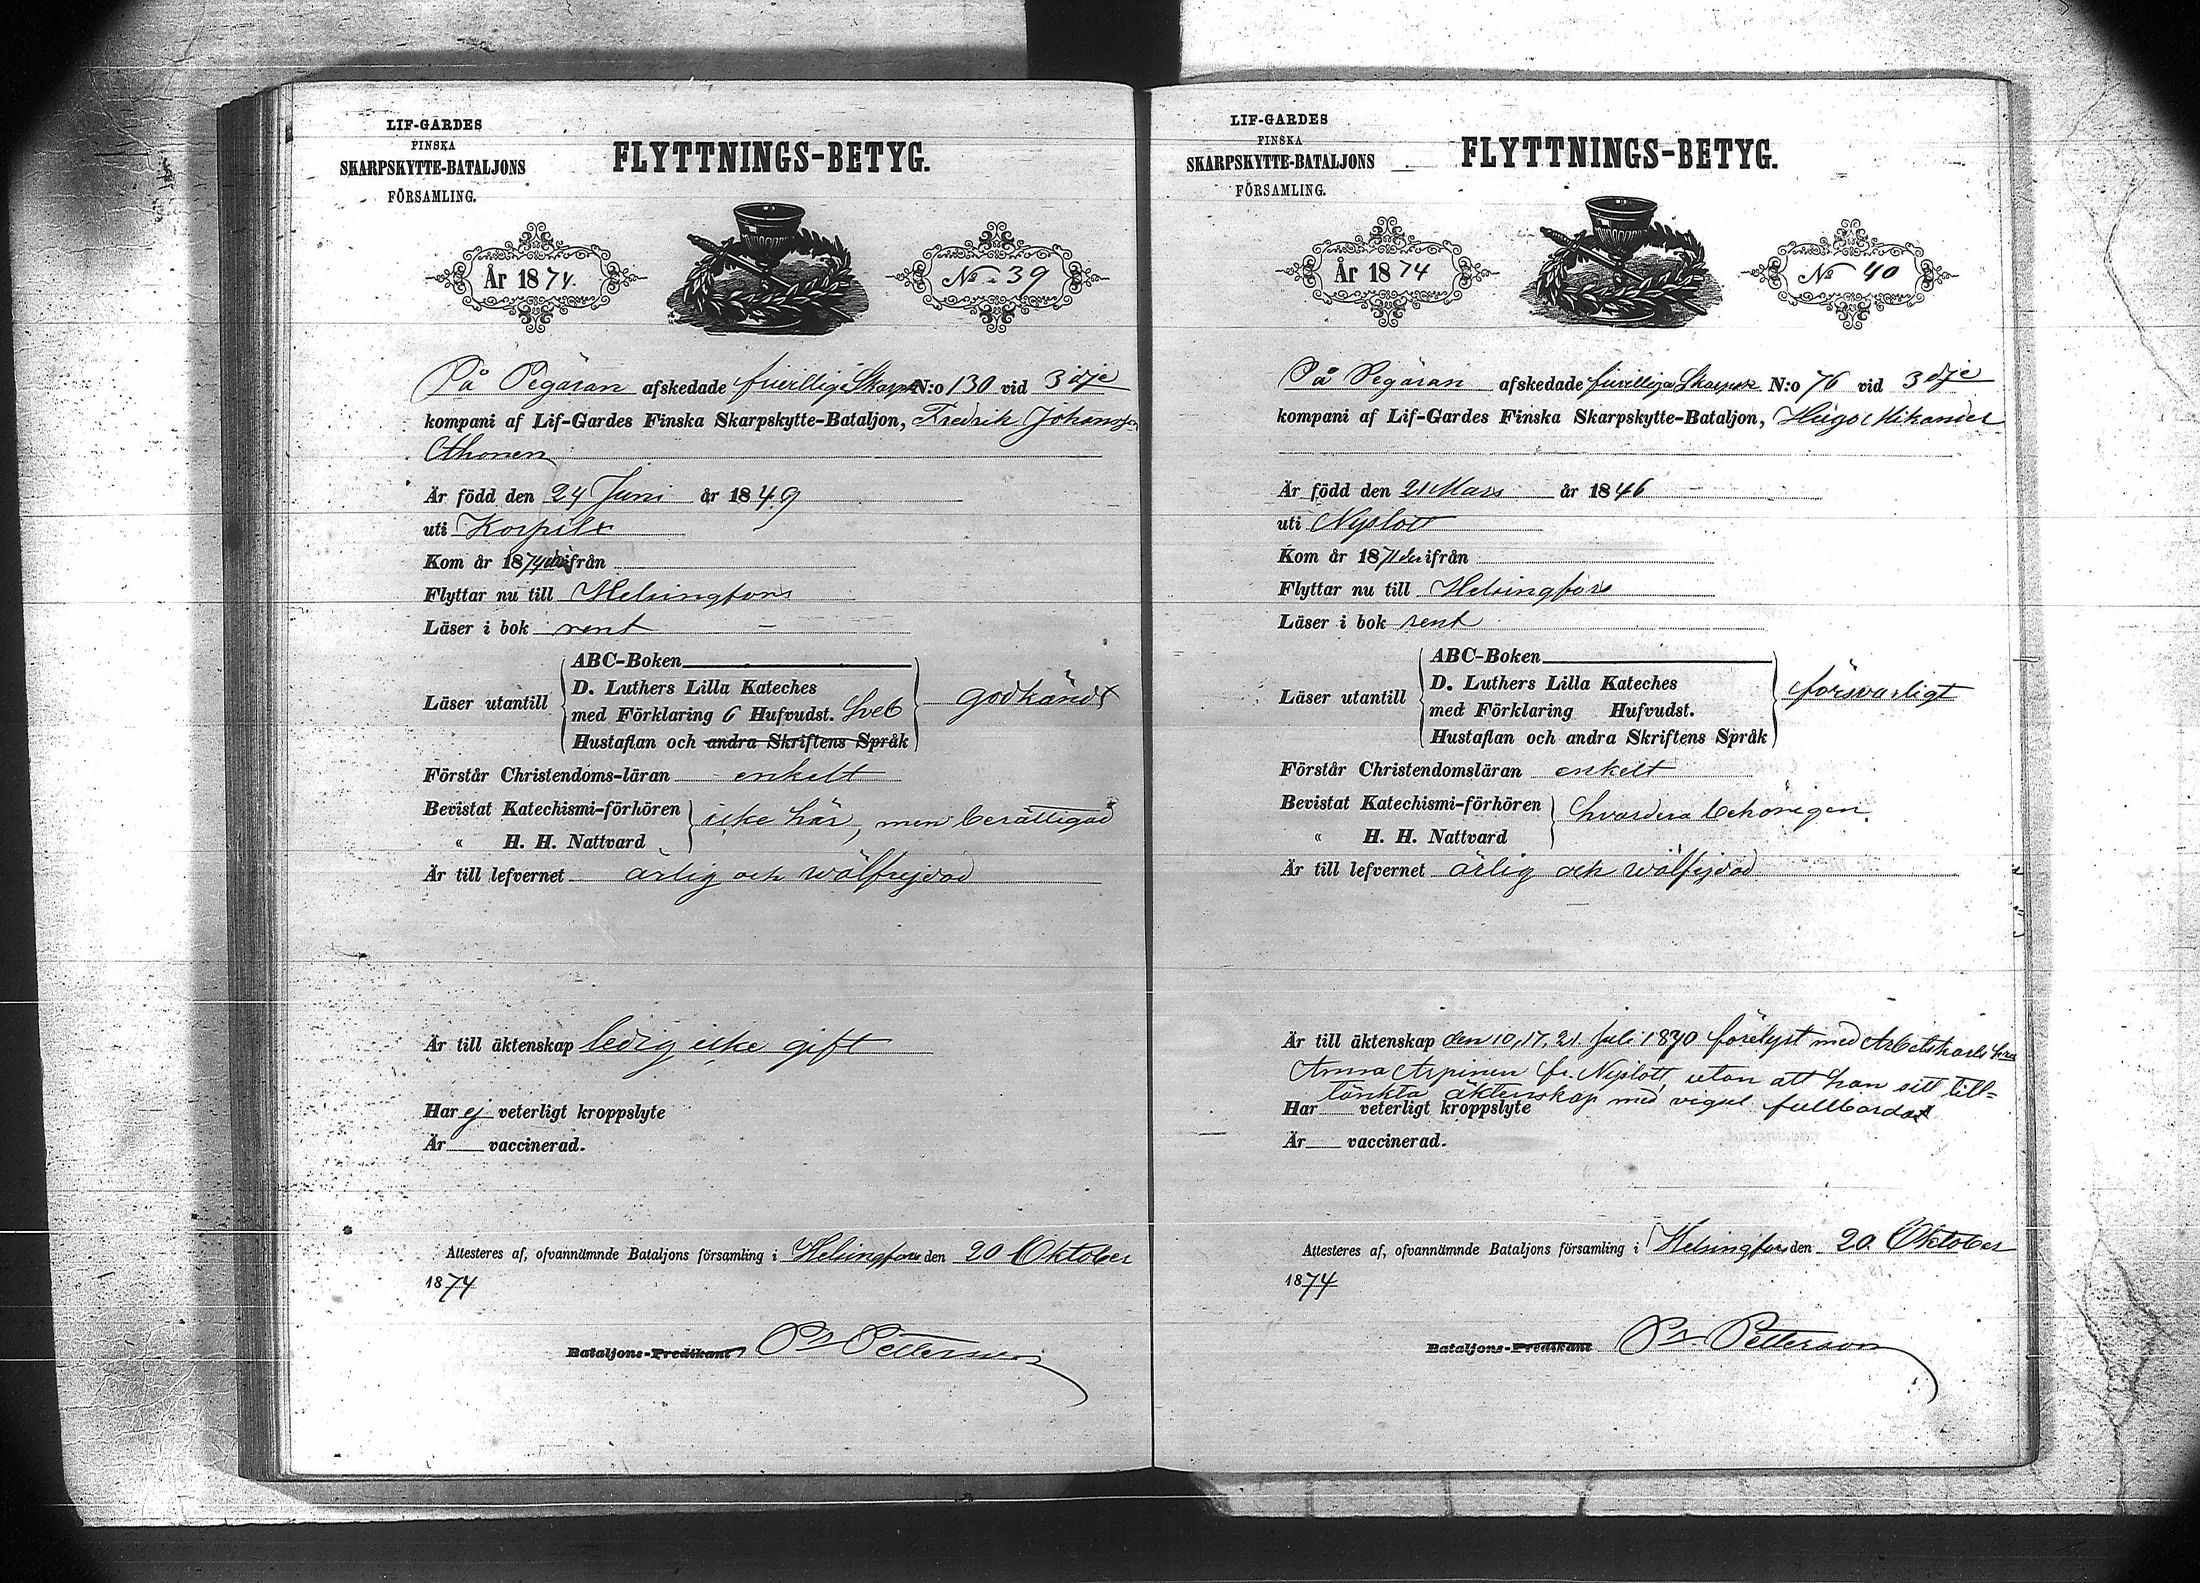 LIF-GARDES
FINSKA
SKARPSKYTTE-BATALJONS
FÖRSAMLING.
FLYTTNINGS-BETYG.
År 1874.
No 39
På Begäran afskedade frivillige Skarpsk N:o 130 vid 3dje
kompani af Lif-Gardes Finska Skarpskytte-Bataljon, Fredrik Johansson
Othonen
Är född den 24 Juni år 1849
uti Korpilx
Kom år 1874 ifrån
Flyttar nu till Helsingfors
Läser i bok rent
ABC-Boken
Läser utantill D. Luthers Lilla Kateches
med Förklaring 6 Hufvudst. Sveb godkändt
Hustaflan och andra Skriftens Språk
Förstår Christendoms-läran enkelt
Bevistat Katechismi-förhören icke här, men berättigad
« H. H. Nattvard
Är till lefvernet ärlig och wälfrejdad
Är till äktenskap ledig icke gift
Har ej veterligt kroppslyte
Är vaccinerad.
Attesteres af, ofvannämnde Bataljons församling i Helsingfors den 20 Oktober
1874
Bataljons-Predikant Petterson
LIF-GARDES
FINSKA
SKARPSKYTTE-BATALJONS
FÖRSAMLING.
FLYTTNINGS-BETYG.
År 1874
No 40
På Begäran afskedade frivillige Skarpsk N:o 76 vid 3dje
kompani af Lif-Gardes Finska Skarpskytte-Bataljon, Hugo Mikander
Är född den 21 Mars år 1846
uti Nyslott
Kom år 1871 ifrån
Flyttar nu till Helsingfors
Läser i bok rent
ABC-Boken
Läser utantill D. Luthers Lilla Kateches
med Förklaring Hufvudst. försvarligt
Hustaflan och andra Skriftens Språk
Förstår Christendomsläran enkelt
Bevistat Katechismi-förhören hvardera behörigen.
« H. H. Nattvard
Är till lefvernet ärlig och wälfrejdad
Är till äktenskap den 10, 17, 21 Juli 1870 förelyst med Arbetskarls
Anna Arpinen fr. Nyslott, utan att han sitt till-
tänkta äktenskap med vigsel fullbordat
Har veterligt kroppslyte
Är vaccinerad.
Attesteres af, ofvannämnde Bataljons församling i Helsingfors den 20. Oktober
1874
Bataljons-Predikant Petterson